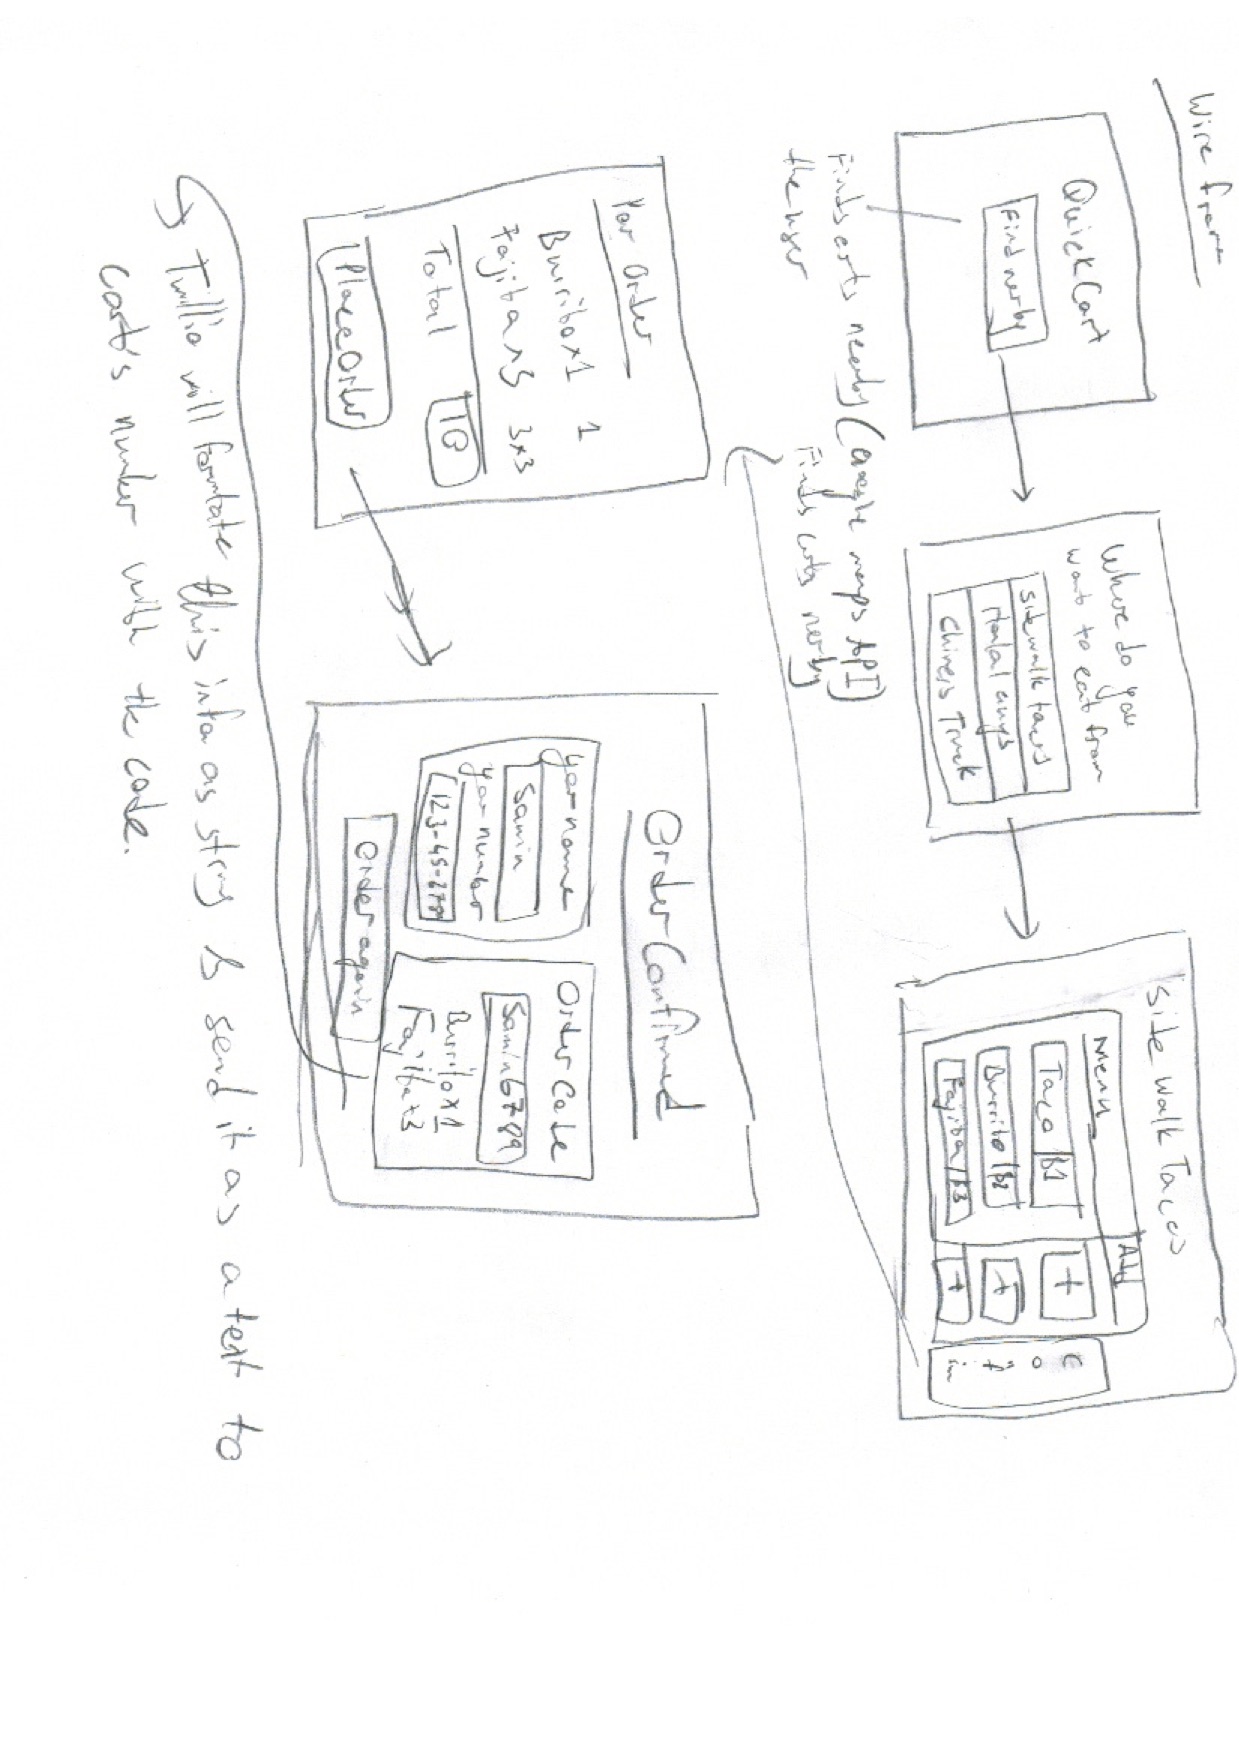 Wire frame
QuickCart
Find nerby
Finds carts nearby (Google maps API)
the user
Finds carts nerby
Where do you
want to eat from
Sidewalk tacos
Halal guys
Chiness Truck
Side Walk Tacos
Menu
Add
Taco | $1
+
Burrito | $2
+
Fajita | $3
+
Your Order
Burrito x1 1
Fajita x3 3x3
Total 10
Place Order
Order Confirmed
your name
Samin
your number
Order Code
Samin6789
Burrito x1
Fajita x3
Order again
Twillio will formtate this info as string & send it as a text to
Cart's number with the code.